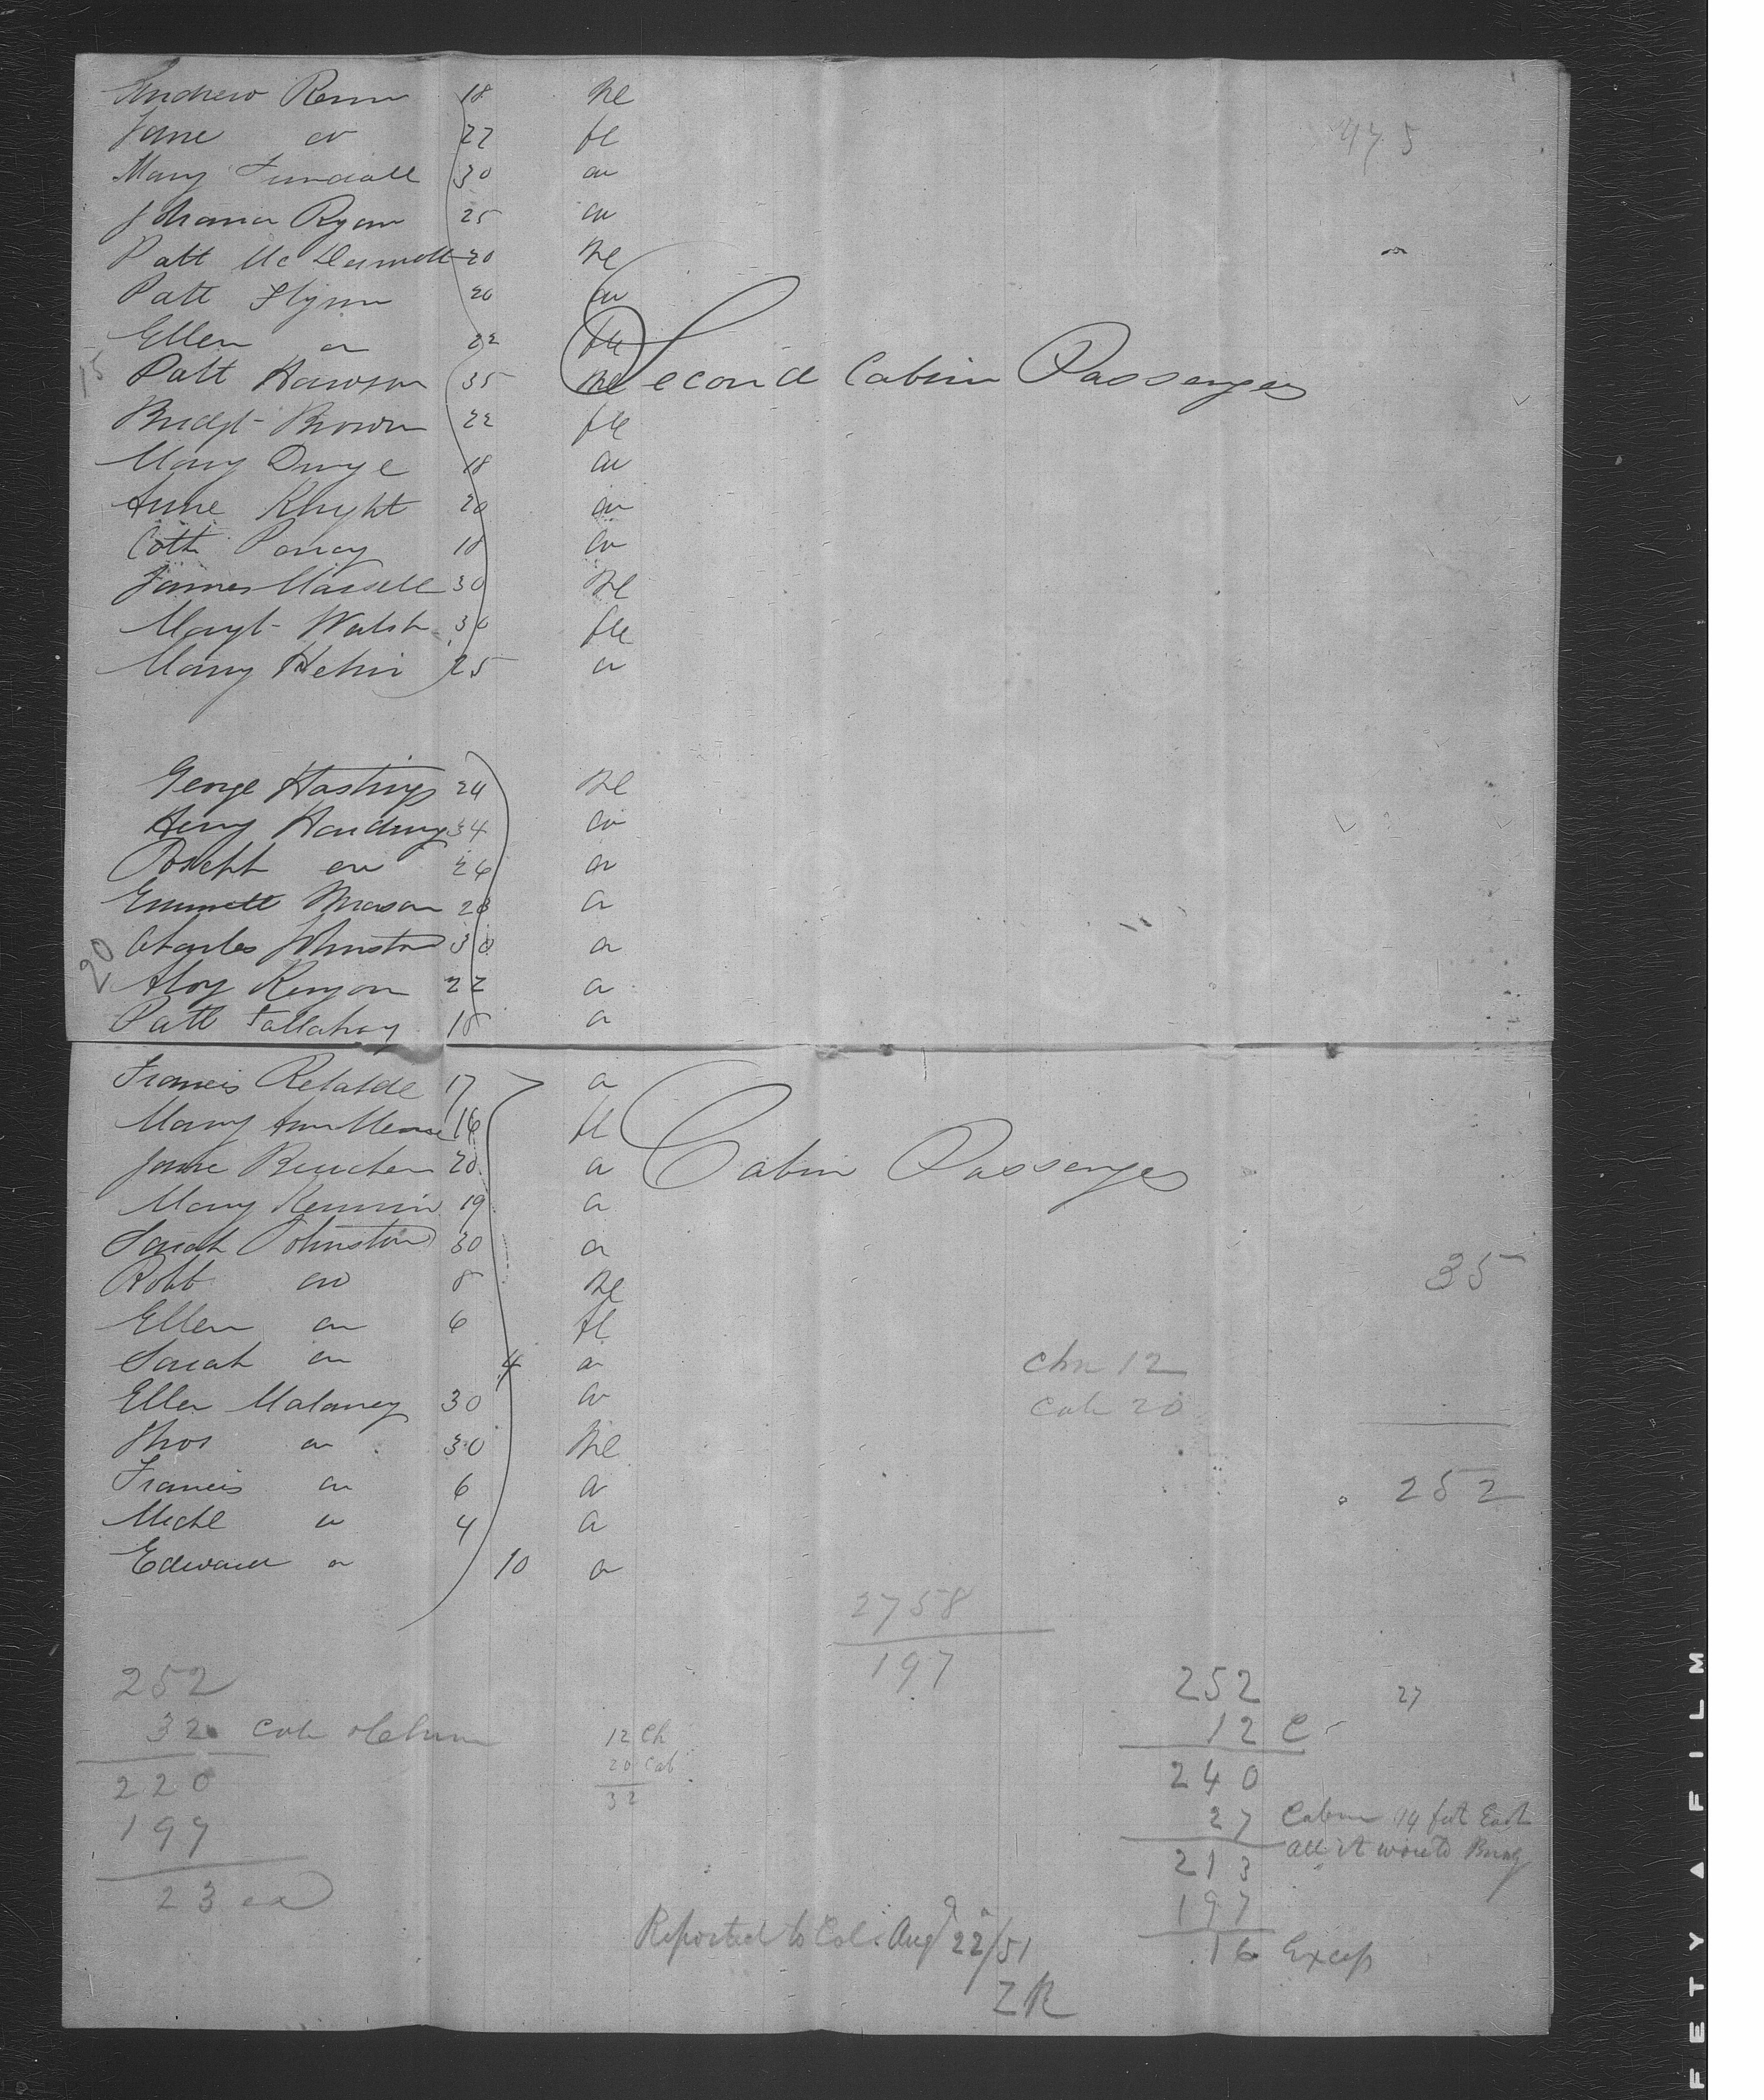 Andrew Renn 18 Me
Jane do 22 fe
Mary Tundall 30 do
Johanna Ryan 25 do
Patt McDermott 20 Me
Patt Flynn 20 do
Ellen do 22 fle
15 Patt Hawson 35 Me
Second Cabin Passenges
Bridgt Brown 22 fle
Mary Dwye 18 do
Anne Knight 20 do
Cath 18 do
James 30 Me
Margt Walsh 30 fle
Mary Hehir 25 do
George Hastings 24 Me
Henry Harding 34 do
Joseph do 26 do
Emmett Mason 28 do
20 Charles Johnston 30 do
Kenyon 22 do
Patt Fallahay 18 do
Francis 17 do
Mary Ann 16 fl
Cabin Passenges
Jane 20 do
Mary 19 do
Sarah Johnston 30 do
Robt do 8 Me
Ellen do 6 fl
Sarah do 4 do
Ellen Malaney 30 do
Thos do 30 Me
Francis do 6 do
Michl do 4 do
Edward do 10 do
475
35
chn 12
cab 20
252
2758
197
252
32 cab
220
197
23 ex
12 Ch
20 Cab
32
252 27
12 C
240
27 Cabin 14 feet Each
213 all it would Bring
197
16 Excess
Reported to Col. Aug 22/51
ZR
SAFETY FILM